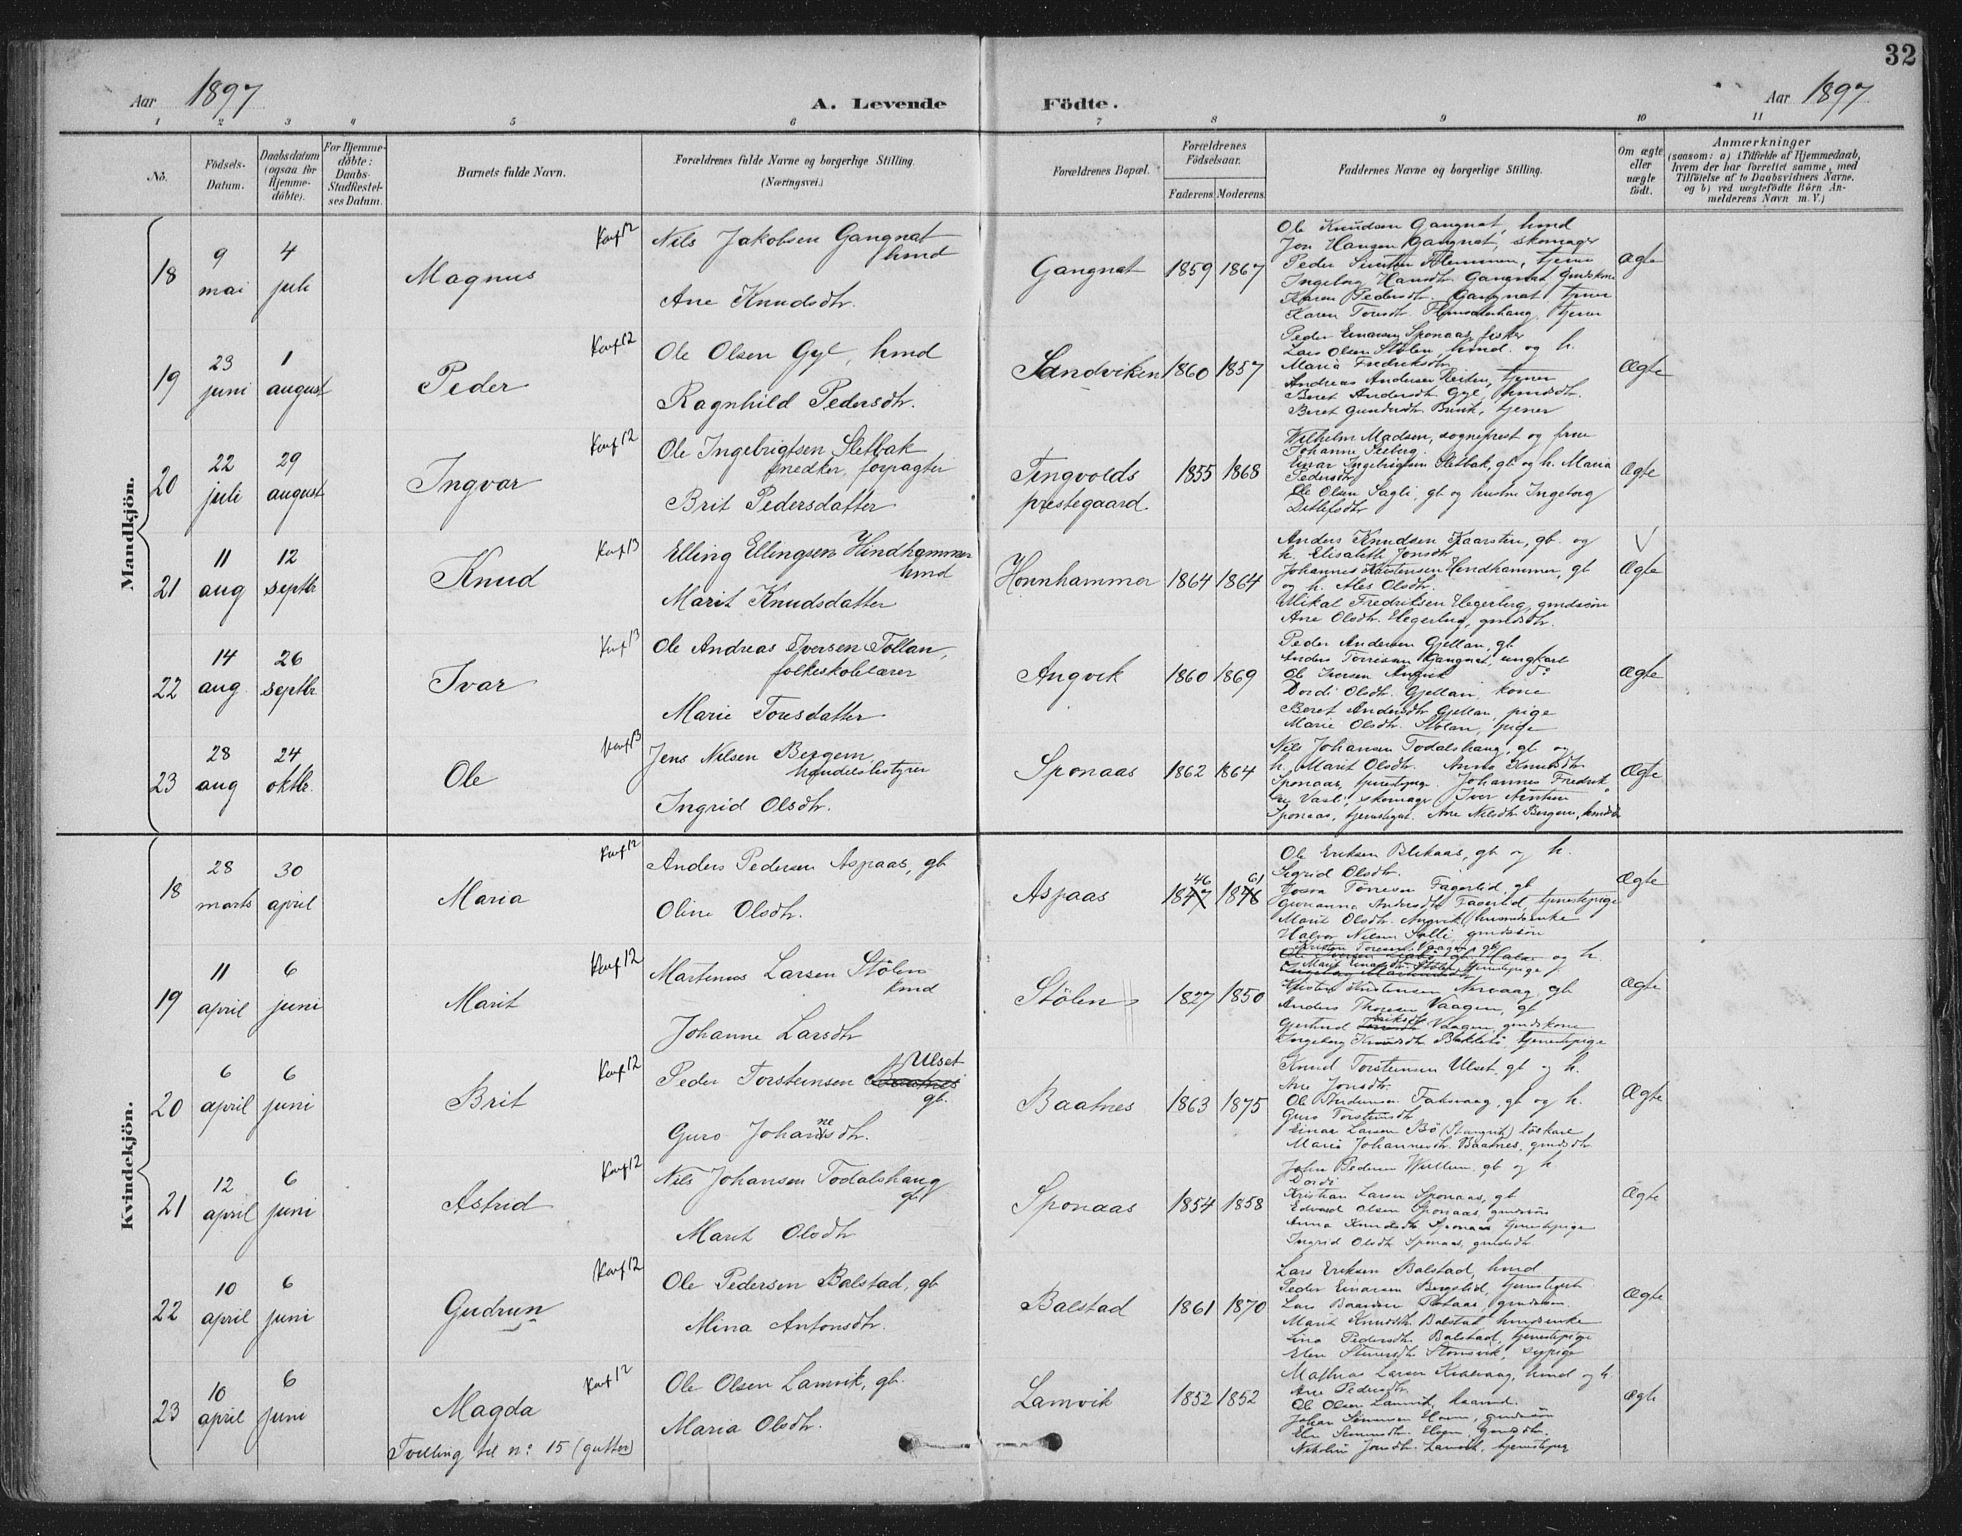 32
Aar 1897
A. Levende Födte.
Aar 1897
1 2 3 4 5 6 7 8 9 10 11
No.
Födsels-Datum.
Daabsdatum (ogsaa for Hjemmedöbte).
For Hjemmedöbte: Daabs-Stadfæstelses Datum.
Barnets fulde Navn.
Forældrenes fulde Navne og borgerlige Stilling. (Næringsvei.)
Forældrenes Bopæl.
Forældrenes Födselsaar.
Faderens Moderens
Faddernes Navne og borgerlige Stilling.
Om ægte eller uægte födt.
Anmærkninger
(saasom: a) i Tilfælde af Hjemmedaab, hvem der har forrettet samme, med Tilföielse af to Daabsvidners Navne. og b) ved uægtefödte Börn Anmelderens Navn m. V.)
Mandkjön.
18
9 mai
4 juli
Magnus
Konf 12
Nils Jakobsen Gangnat
hmd
Ane Knudsdtr.
Gangnat
1859 1867
Ole Knudsen Gangnat, hmd
Jon Hansen Gangnat, skomager
Ingeborg Hansdtr. Gangnat gmdskone
Karen Pedersdtr. Gangnat tjener
ægte
19
23 juni
1 august
Peder
Konf 12
Ole Olsen Gyl, hmd
Ragnhild Pedersdtr.
Sandviken
1860 1857
Peder Einarsen Sponaas, fisker
Lars Olsen Stölen, hmd. og h.
Maria Fredriksdtr.
Andreas Andersen Reiten, tjener
Beret Andersdtr Gyl, hmdsdtr.
ægte
20
22 juli
29 august
Ingvar
Konf 12
Ole Ingebrigtsen Sletbak
snedker, forpagter
Brit Pedersdatter
Tingvolds
prestegaard.
1855 1868
Wilhelm Madsen, sogneprest og frue
Johanne Seeberg.
Einar Ingebrigtsen Sletbak, gb. og h. Maria
Pedersdtr
Ole Olsen Sagli, gb og hustru Ingeborg
Detlefsdtr
ægte
21
11 aug
12 septbr
Knud
Konf 13
Elling Ellingsen Hindhammer
hmd
Marit Knudsdatter
Honnhammer
1864 1864
Anders Knudsen Kaarsten, gb. og
h. Elisabeth Jonsdtr
Johannes Karstensen Hindhammer, gb
og h. Ales Olsdtr.
Mikal Fredriksen Hegerberg, gmdssön
Ane Olsdtr. Hegerberg, gmdsdtr.
ægte
22
14 aug.
26 septbr
Ivar
Konf 13
Ole Andreas Iversen Tollan,
folkeskolelærer
Marie Toresdatter
Angvik
1860 1869
Peder Andersen Gjellan, gb
Anders Torresen Gangnat, ungkarl
Ole Iversen Angvik do
Dordi Olsdtr. Gjellan, kone
Beret Andersdtr Gjellan, pige
Marie Olsdtr. Stölan, pige
ægte
23
28 aug
24 oktbr.
Ole
Konf 13
Jens Nilsen Bergem
handelsbestyrer
Ingrid Olsdtr.
Sponaas
1862 1864
Nils Johansen Todalshaug, gb og
h. Marit Olsdtr. Anne Knudsdtr
Sponaas, tjenestpige. Johannes Fredrik-
sen Vasli, skomager Iver Arntsen
Sponaas, tjenestegut. Ane Nilsdtr Bergem, hmdsdtr
ægte
Kvindekjön.
18
28 marts
30 april
Maria
Konf 12
Anders Pedersen Aspaas, gb
Oline Olsdtr.
Aspaas
46 61
1847 1846
Ole Eriksen Blekaas, gb og h.
Sigrid Olsdtr.
Törresen Fagerlid, gb
Andersdtr Fagerlid, tjenestepige
Marit Olsdtr. Angvik, husmdsenke
Halvor Nilsen Salli, gmdssön
ægte
19
11 april
6 juni
Marit
Konf 12
Martenus Larsen Stölen
hmd
Johanne Larsdtr
Stölen
1827 1850
Kristen Toresen Vaagen, gb
og h.
Marit Einarsdtr. Stölen, tjenestepige
Kristen Kristensen Nervaag, gb
Anders Thoresen Vaagen, gb
Eriksdtr
Gjertrud Vaagen, gmdskone
Ingeborg Knudsdtr tjenestepige
ægte
20
6 april
6 juni
Brit
Konf 12
Ulset
Peder Torsteinsen Baatnes
gb.
Guro Johannesdtr.
Baatnes
1863 1875
Knud Torsteinsen Ulset, gb og h.
Ane Jonsdtr.
Ole Andersen Faksvaag, gb og h.
Guro Torsteinsdtr
Einar Larsen Bö (Stangvik) löskarl
Maria Johannesdtr. Baatnes, gmdsdtr.
ægte
21
12 april
6 juni
Astrid
Konf 12
Nils Johansen Todalshaug
gb.
Marit Olsdtr
Sponaas
1854 1858
John Pedersen gb og h
Dordi
Kristian Larsen Sponaas, gb
Edvard Olsen Sponaas, gmdssön
Anna Knudsdtr Sponaas tjenestepige
Ingrid Olsdtr Sponaas, gmdsdtr.
ægte
22
10 april
6 juni
Gudrun
Konf 12
Ole Pedersen Balstad, gb
Mina Antonsdtr.
Balstad
1861 1870
Lars Eriksen Balstad, hmd
Peder Einarsen Bergslid, tjenestegut
Marit Knudsdtr Balstad hmdsenke
Lina Pedersdtr. Balstad, tjenestepige
sypige
ægte
23
10 april
6 juni
Magda
Konf 12
Tvilling til no 15 (gutter)
Ole Olsen Lamvik, gb.
Maria Olsdtr.
Lamvik
1852 1852
Mathias Larsen Kvalvaag, hmd og h.
Ane Pedersdtr.
Ole Olsen Lamvik, kaarmd.
Nikoline Jonsdtr. Lamvik, tjenestepig
ægte